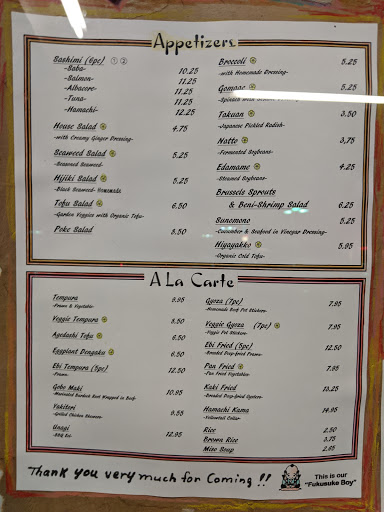 Appetizers
Sashimi (6pc) ① ②
-Saba- 10.25
-Salmon- 11.25
-Albacore- 11.25
-Tuna- 11.25
-Hamachi- 12.25
House Salad 4.75
-with Creamy Ginger Dressing-
Seaweed Salad 5.25
-Seasoned Seaweed-
Hijiki Salad 5.25
-Black Seaweed- HOMEMADE
Tofu Salad 6.50
-Garden Veggies with Organic Tofu-
Poke Salad 8.50
Broccoli 5.25
-with Homemade Dressing-
Gomaae 5.25
-Spinach with
Takuan 3.50
-Japanese Pickled Radish-
Natto 3.75
-Fermented Soybeans-
Edamame 4.25
-Steamed Soybeans-
Brussels Sprouts
& Beni-Shrimp Salad 6.25
Sunomono 5.25
-Cucumber & Seafood in Vinegar Dressing-
Hiyayakko 5.95
-Organic Cold Tofu-
A La Carte
Tempura 8.95
-Prawns & Vegetable-
Veggie Tempura 8.50
Agedashi Tofu 6.50
Eggplant Dengaku 6.50
Ebi Tempura (5pc) 12.50
-Prawns-
Gobo Maki 10.95
-Marinated Burdock Root Wrapped in Beef-
Yakitori 9.55
-Grilled Chicken Skewers-
Unagi 12.95
-BBQ Eel-
Gyoza (7pc) 7.95
-Homemade Pork Pot Stickers-
Veggie Gyoza (7pc) 7.95
-Veggie Pot Stickers-
Ebi Fried (5pc) 12.50
-Breaded Deep-fried Prawns-
Pan Fried 7.95
-Pan Fried Vegetables-
Kaki Fried 13.25
-Breaded Deep-fried Oysters-
Hamachi Kama 14.95
-Yellowtail Collar-
Rice 2.50
Brown Rice 3.75
Miso Soup 2.95
Thank you very much for Coming !!
This is our
"Fukusuke Boy"